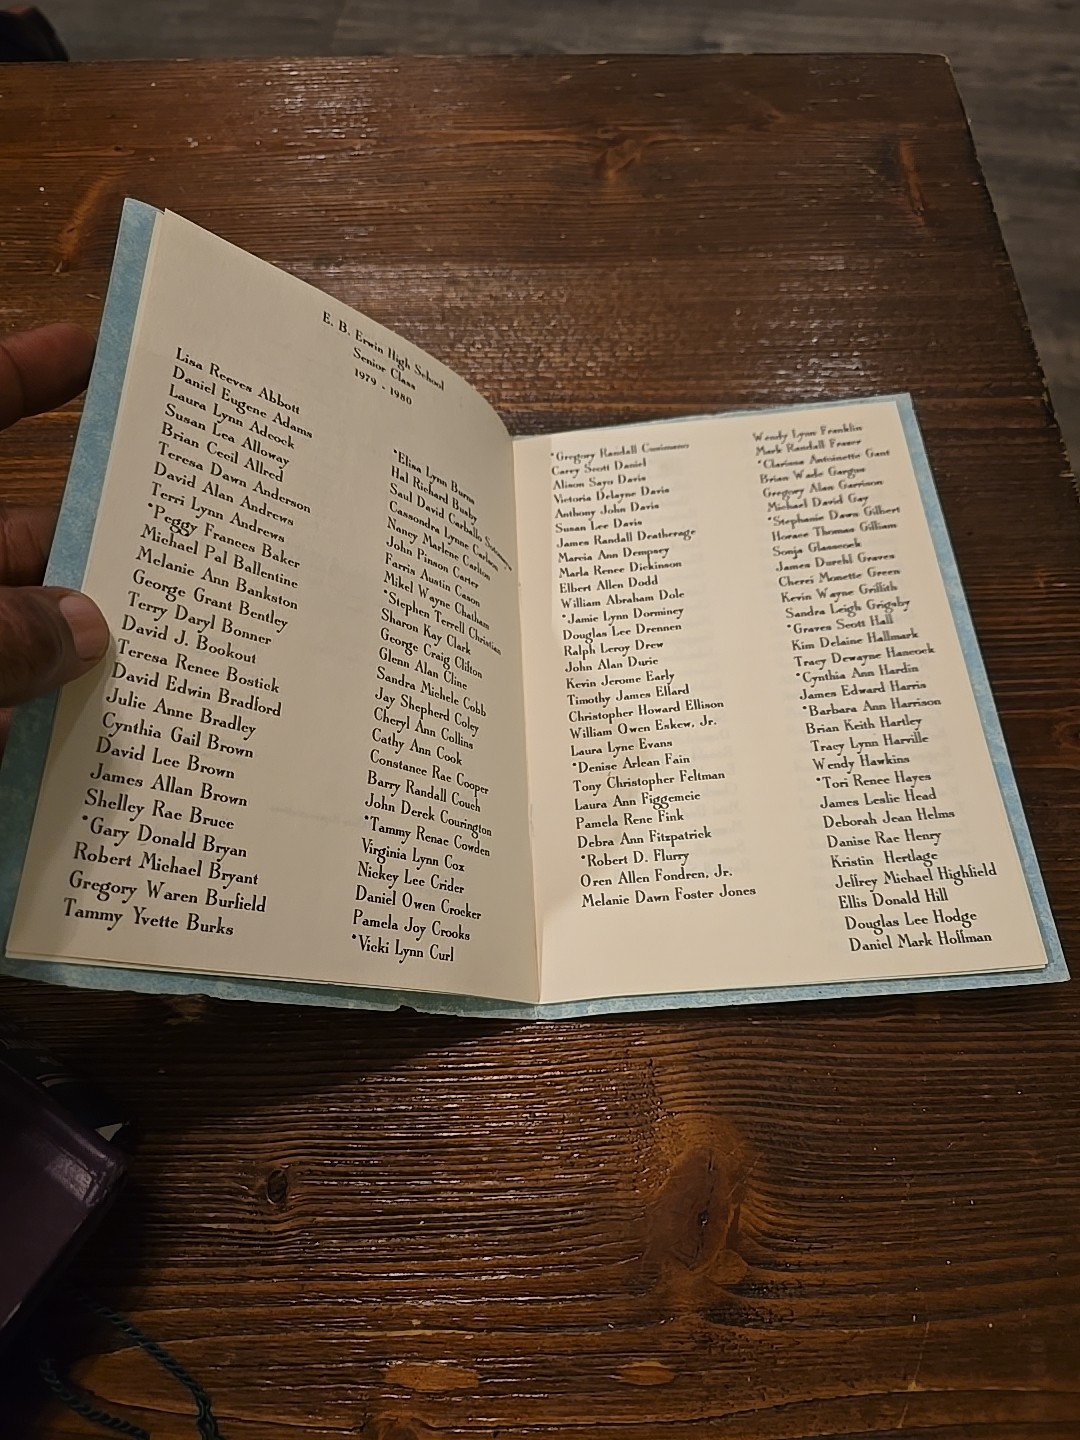 E. B. Erwin High School
Senior Class
1979 - 1980
Lisa Reeves Abbott
Daniel Eugene Adams
Laura Lynn Adcock
Susan Lea Alloway
Brian Cecil Allred
Teresa Dawn Anderson
David Alan Andrews
Terri Lynn Andrews
*Peggy Frances Baker
Michael Pal Ballentine
Melanie Ann Bankston
George Grant Bentley
Terry Daryl Bonner
David J. Bookout
Teresa Renee Bostick
David Edwin Bradford
Julie Anne Bradley
Cynthia Gail Brown
David Lee Brown
James Allan Brown
Shelley Rae Bruce
*Gary Donald Bryan
Robert Michael Bryant
Gregory Waren Burfield
Tammy Yvette Burks
*Elisa Lynn Burns
Hal Richard Busby
Saul David Carballo
Cassondra Lynne Carlson
Nancy Marlene Carlton
John Pinson Carter
Farris Austin Cason
Mikel Wayne Chatham
*Stephen Terrell Christian
Sharon Kay Clark
George Craig Clifton
Glenn Alan Cline
Sandra Michele Cobb
Jay Shepherd Coley
Cheryl Ann Collins
Cathy Ann Cook
Constance Rae Cooper
Barry Randall Couch
John Derek Courington
*Tammy Renae Cowden
Virginia Lynn Cox
Nickey Lee Crider
Daniel Owen Crocker
Pamela Joy Crooks
*Vicki Lynn Curl
*Gregory Randall Cusimano
Carey Scott Daniel
Alison Sayo Davis
Victoria Delayne Davis
Anthony John Davis
Susan Lee Davis
James Randall Deatherage
Marcia Ann Dempsey
Marla Renee Dickinson
Elbert Allen Dodd
William Abraham Dole
*Jamie Lynn Dorminey
Douglas Lee Drennen
Ralph Leroy Drew
John Alan Durie
Kevin Jerome Early
Timothy James Ellard
Christopher Howard Ellison
William Owen Eskew, Jr.
Laura Lyne Evans
*Denise Arlean Fain
Tony Christopher Feltman
Laura Ann Figgemeie
Pamela Rene Fink
Debra Ann Fitzpatrick
*Robert D. Flurry
Oren Allen Fondren, Jr.
Melanie Dawn Foster Jones
Wendy Lynn Franklin
Mark Randall Fraser
*Clarissa Antoinette Gant
Brian Wade Gargus
Gregory Alan Garrison
Michael David Gay
*Stephanie Dawn Gilbert
Horace Thomas Gilliam
Sonja Glasscock
James Durehl Graves
Cherei Monette Green
Kevin Wayne Griffith
Sandra Leigh Grigsby
*Graves Scott Hall
Kim Delaine Hallmark
Tracy Dewayne Hancock
*Cynthia Ann Hardin
James Edward Harris
*Barbara Ann Harrison
Brian Keith Hartley
Tracy Lynn Harville
Wendy Hawkins
*Tori Renee Hayes
James Leslie Head
Deborah Jean Helms
Danise Rae Henry
Kristin Hertlage
Jeffrey Michael Highfield
Ellis Donald Hill
Douglas Lee Hodge
Daniel Mark Hoffman